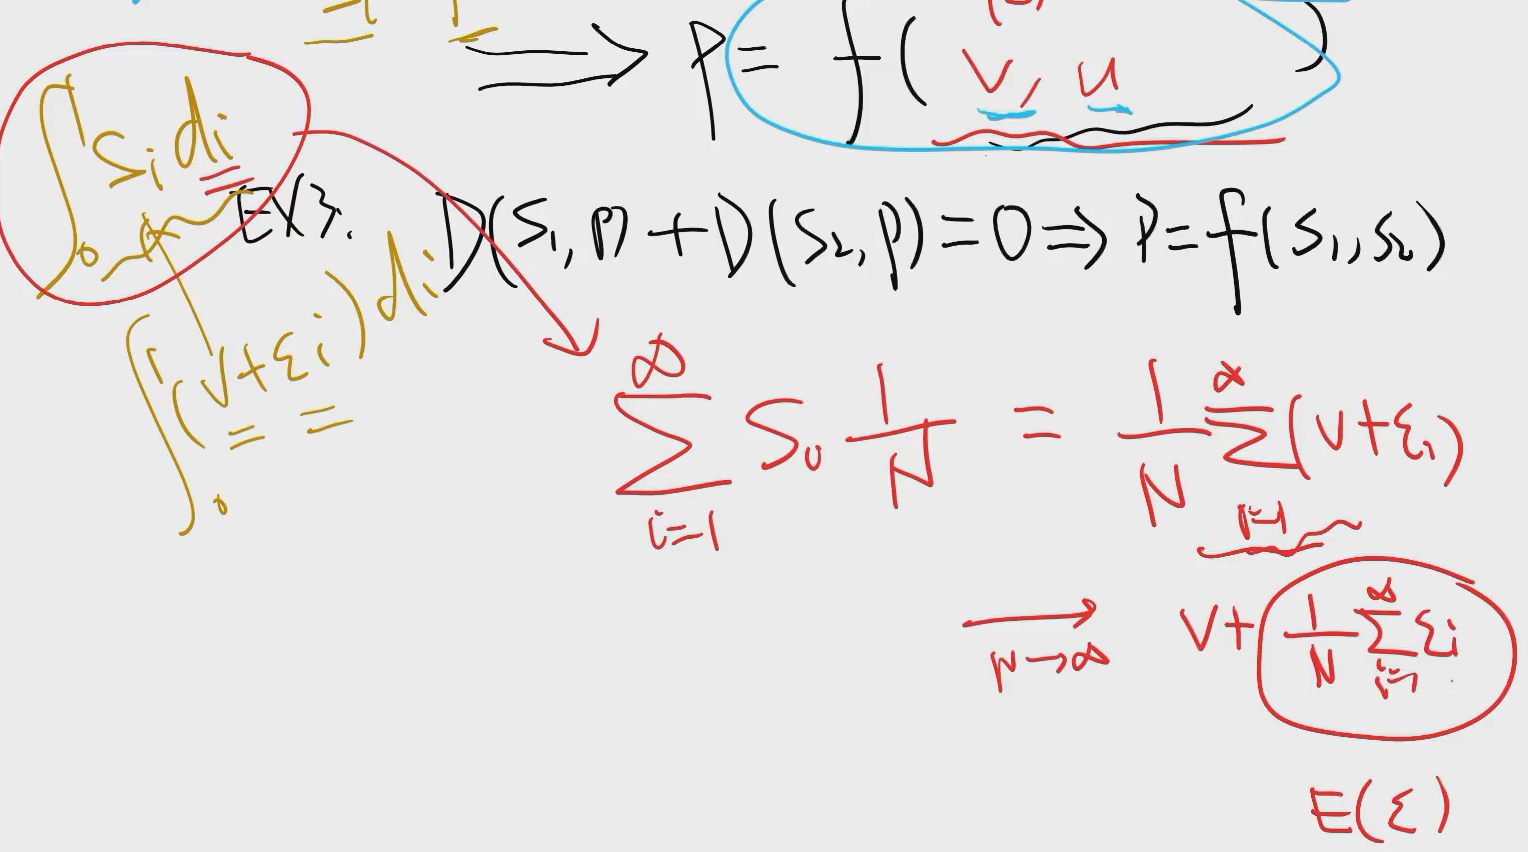 ⟹ P = f(v, u)
∫₀¹ Sᵢ di
EX3. D(S₁, P) + D(S₂, P) = 0 ⟹ P = f(S₁, S₂)
∫₀¹ (v + εᵢ) di
∑_{i=1}^{∞} S₀ 1/N = 1/N ∑_{i=1}^{∞} (v + εᵢ)
⟶_{N→∞} v + 1/N ∑_{i=1}^{∞} εᵢ
E(ε)